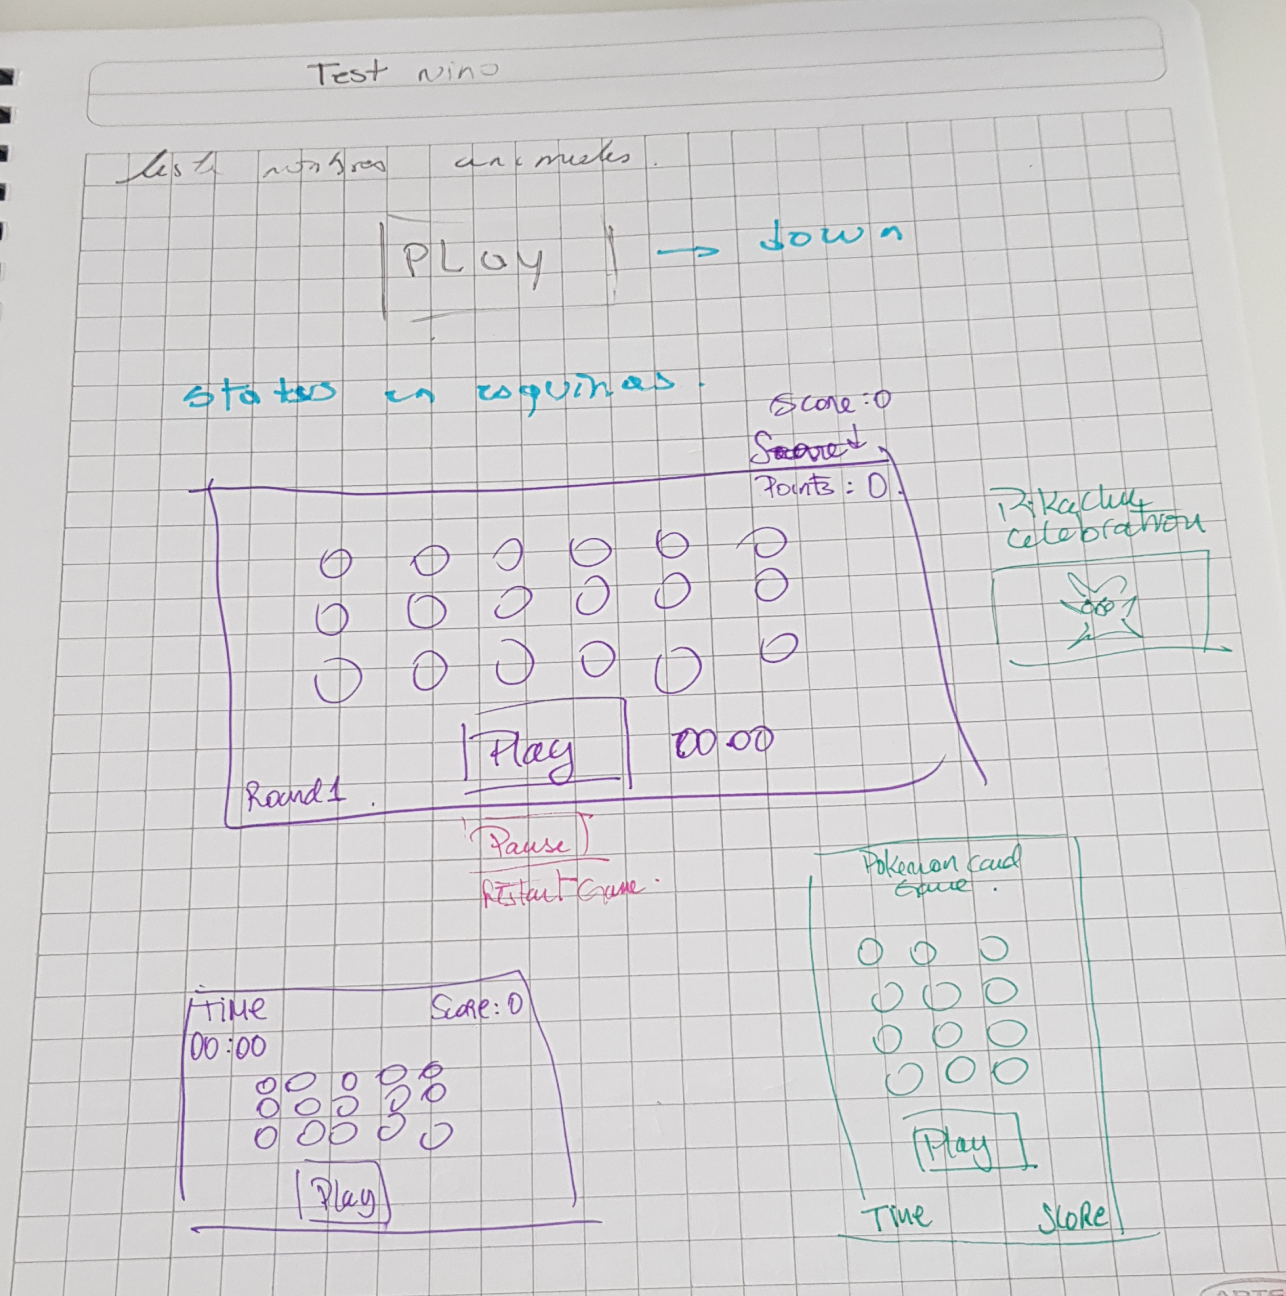 Test nino
lista nombres animales.
PLay → down
states en esquinas.
Score:0
Score↓
Points: 0.
Pikachu
celebration
Play 00:00
Round 1.
Pause
Restart Game.
Pokemon Card
Game.
Play
Time SCORe
TIMe Score: 0
00:00
Play